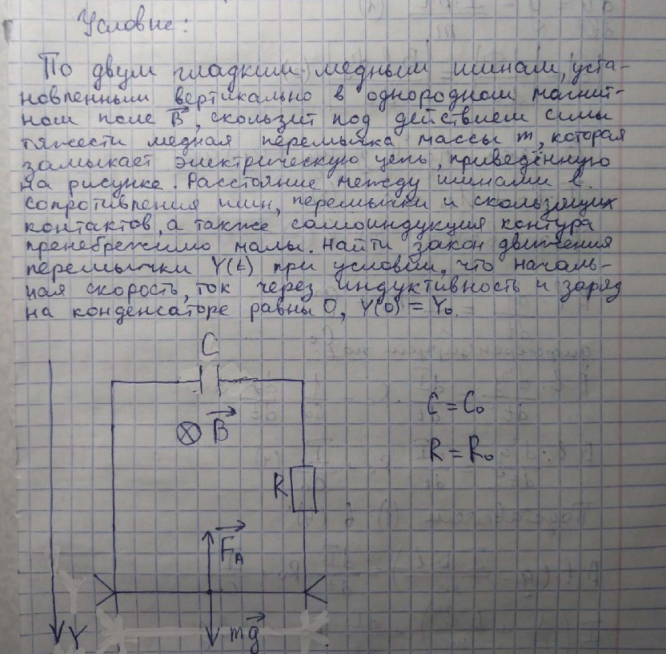 Условие:
По двум гладким медным шинам, уста-
новленным вертикально в однородном магнит-
ном поле B, скользит под действием силы
тяжести медная перемычка массы m, которая
замыкает электрическую цепь, приведённую
на рисунке. Расстояние между шинами l.
сопротивления шин, перемычки и скользящих
контактов, а также самоиндукция контура
пренебрежимо малы. Найти закон движения
перемычки Y(t) при условии, что началь-
ная скорость, ток через индуктивность и заряд
на конденсаторе равны 0, Y(0) = Y₀.
C
B
C = C₀
R = R₀
R
F_A
Y
mg